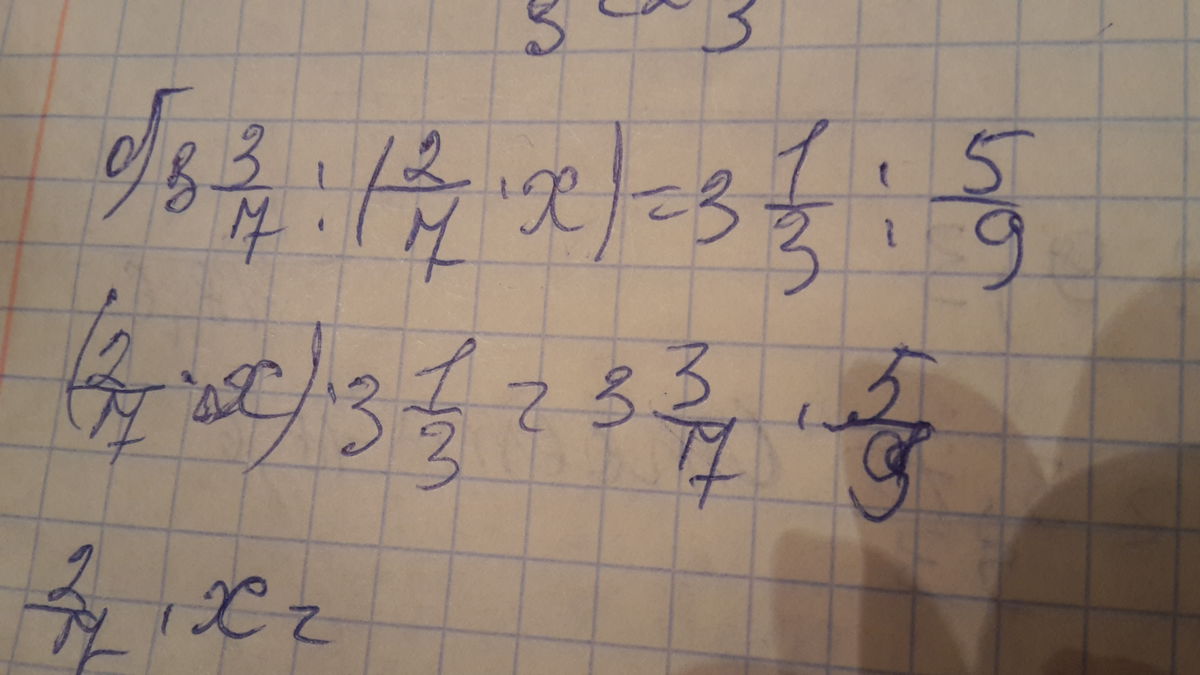 б) 3 3/7 : (2/7 · x) = 3 1/3 : 5/9
(2/7 · x) · 3 1/3 = 3 3/7 · 5/9
2/7 · x =